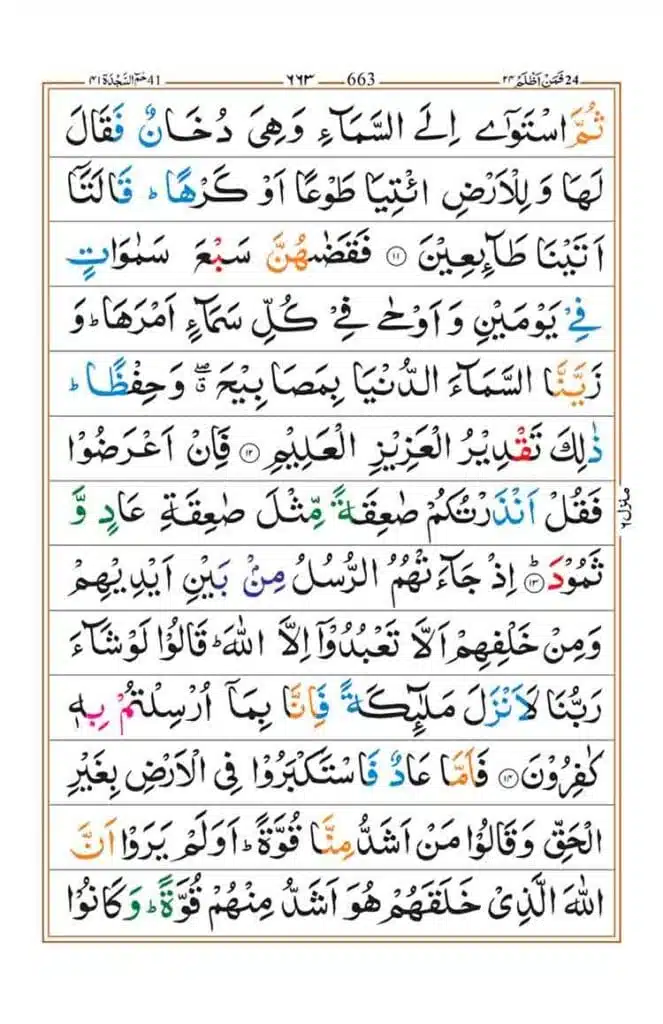 فَمَنْ اَظْلَمُ ٢٤ 24 663 ٦٦٣ حٰمٓ السَّجْدَة ٤١ 41
ثُمَّ اسْتَوٰۤى اِلَى السَّمَآءِ وَهِىَ دُخَانٌ فَقَالَ
لَهَا وَ لِلْاَرْضِ ائْتِيَا طَوْعًا اَوْ كَرْهًا ؕ قَالَتَاۤ
اَتَيْنَا طَآٮِٕعِيْنَ ۝۱۱ فَقَضٰهُنَّ سَبْعَ سَمٰوَاتٍ
فِىْ يَوْمَيْنِ وَ اَوْحٰى فِىْ كُلِّ سَمَآءٍ اَمْرَهَا ؕ وَ
زَيَّنَّا السَّمَآءَ الدُّنْيَا بِمَصَابِيْحَ ۖۗ وَ حِفْظًا ؕ
ذٰلِكَ تَقْدِيْرُ الْعَزِيْزِ الْعَلِيْمِ ۝۱۲ فَاِنْ اَعْرَضُوْا
فَقُلْ اَنْذَرْتُكُمْ صٰعِقَةً مِّثْلَ صٰعِقَةِ عَادٍ وَّ
ثَمُوْدَ ؕ ۝۱۳ اِذْ جَآءَتْهُمُ الرُّسُلُ مِنْۢ بَيْنِ اَيْدِيْهِمْ
وَمِنْ خَلْفِهِمْ اَلَّا تَعْبُدُوْۤا اِلَّا اللّٰهَ ؕ قَالُوْا لَوْ شَآءَ
رَبُّنَا لَاَنْزَلَ مَلٰٓٮِٕكَةً فَاِنَّا بِمَاۤ اُرْسِلْتُمْ بِهٖ
كٰفِرُوْنَ ۝۱۴ فَاَمَّا عَادٌ فَاسْتَكْبَرُوْا فِى الْاَرْضِ بِغَيْرِ
الْحَقِّ وَقَالُوْا مَنْ اَشَدُّ مِنَّا قُوَّةً ؕ اَوَلَمْ يَرَوْا اَنَّ
اللّٰهَ الَّذِىْ خَلَقَهُمْ هُوَ اَشَدُّ مِنْهُمْ قُوَّةً ؕ وَ كَانُوْا
منزل ٦